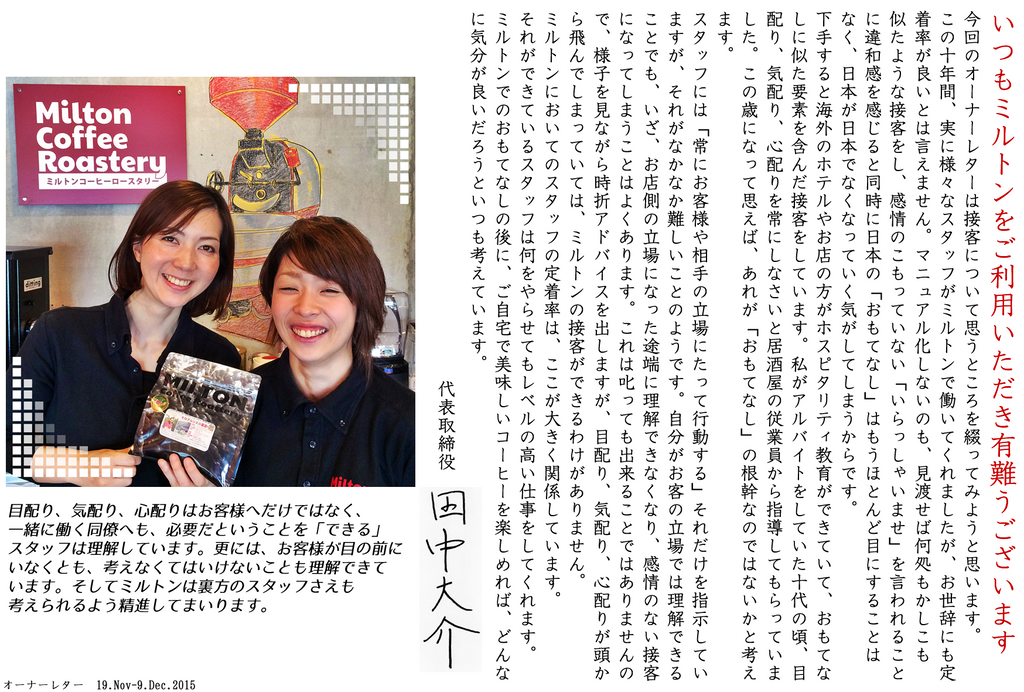 いつもミルトンをご利用いただき有難うございます
今回のオーナーレターは接客について思うところを綴ってみようと思います。
この十年間、実に様々なスタッフがミルトンで働いてくれましたが、お世辞にも定
着率が良いとは言えません。マニュアル化しないのも、見渡せば何処もかしこも
似たような接客をし、感情のこもっていない「いらっしゃいませ」を言われること
に違和感を感じると同時に日本の「おもてなし」はもうほとんど目にすることは
なく、日本が日本でなくなっていく気がしてしまうからです。
下手すると海外のホテルやお店の方がホスピタリティ教育ができていて、おもてな
しに似た要素を含んだ接客をしています。私がアルバイトをしていた十代の頃、目
配り、気配り、心配りを常にしなさいと居酒屋の従業員から指導してもらっていま
した。この歳になって思えば、あれが「おもてなし」の根幹なのではないかと考え
ます。
スタッフには「常にお客様や相手の立場にたって行動する」それだけを指示してい
ますが、それがなかなか難しいことのようです。自分がお客の立場では理解できる
ことでも、いざ、お店側の立場になった途端に理解できなくなり、感情のない接客
になってしまうことはよくあります。これは叱っても出来ることではありませんの
で、様子を見ながら時折アドバイスを出しますが、目配り、気配り、心配りが頭か
ら飛んでしまっていては、ミルトンの接客ができるわけがありません。
ミルトンにおいてのスタッフの定着率は、ここが大きく関係しています。
それができているスタッフは何をやらせてもレベルの高い仕事をしてくれます。
ミルトンでのおもてなしの後に、ご自宅で美味しいコーヒーを楽しめれば、どんな
に気分が良いだろうといつも考えています。
代表取締役
田中大介
Milton
Coffee
Roastery
ミルトンコーヒーロースタリー
ditting
MILTON
Milton
目配り、気配り、心配りはお客様へだけではなく、
一緒に働く同僚へも、必要だということを「できる」
スタッフは理解しています。更には、お客様が目の前に
いなくとも、考えなくてはいけないことも理解できて
います。そしてミルトンは裏方のスタッフさえも
考えられるよう精進してまいります。
オーナーレター 19.Nov-9.Dec.2015